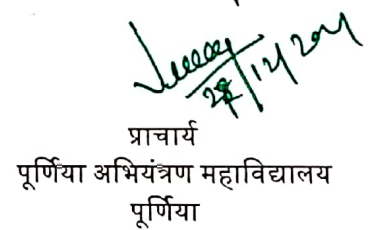 प्राचार्य
पूर्णिया अभियंत्रण महाविद्यालय
पूर्णिया